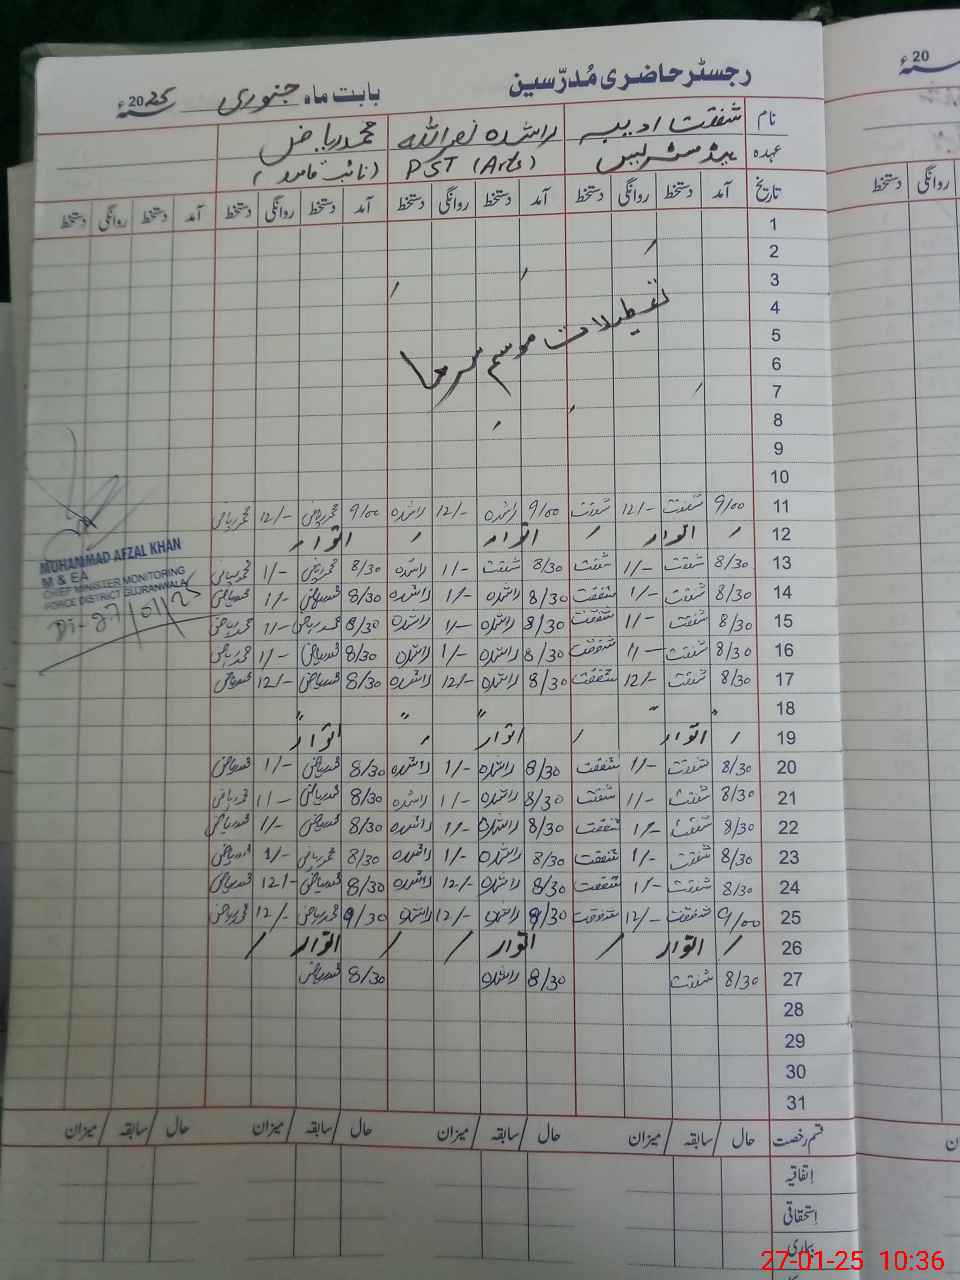 رجسٹر حاضری مُدرّسین
بابت ماہ جنوری 2025ء
نام شفقت ادیبہ راشدہ نصراللہ محمد ریاض
عہدہ ہیڈ مسٹریس PST (Arts) (نائب قاصد)
تاریخ آمد دستخط روانگی دستخط آمد دستخط روانگی دستخط آمد دستخط روانگی دستخط آمد دستخط روانگی دستخط
1
2
3
4
5
6
7
8
9
10
تعطیلات موسم سرما
11 9/00 شفقت 12/- شفقت 9/00 راشدہ 12/- راشدہ 9/00 محمد ریاض 12/- محمد ریاض
12 اتوار اتوار اتوار
13 8/30 شفقت 1/- شفقت 8/30 شفقت 1/- راشدہ 8/30 محمد ریاض 1/- محمد ریاض
14 8/30 شفقت 1/- شفقت 8/30 راشدہ 1/- راشدہ 8/30 محمد ریاض 1/- محمد ریاض
15 8/30 شفقت 1/- شفقت 8/30 راشدہ 1/- راشدہ 8/30 محمد ریاض 1/- محمد ریاض
16 8/30 شفقت 1/- شفقت 8/30 راشدہ 1/- راشدہ 8/30 محمد ریاض 1/- محمد ریاض
17 8/30 شفقت 12/- شفقت 8/30 راشدہ 12/- راشدہ 8/30 محمد ریاض 12/- محمد ریاض
18 " " " " "
19 اتوار اتوار اتوار
20 8/30 شفقت 1/- شفقت 8/30 راشدہ 1/- راشدہ 8/30 محمد ریاض 1/- محمد ریاض
21 8/30 شفقت 1/- شفقت 8/30 راشدہ 1/- راشدہ 8/30 محمد ریاض 1/- محمد ریاض
22 8/30 شفقت 1/- شفقت 8/30 راشدہ 1/- راشدہ 8/30 محمد ریاض 1/- محمد ریاض
23 8/30 شفقت 1/- شفقت 8/30 راشدہ 1/- راشدہ 8/30 محمد ریاض 1/- محمد ریاض
24 8/30 شفقت 1/- شفقت 8/30 راشدہ 12/- راشدہ 8/30 محمد ریاض 12/- محمد ریاض
25 9/00 شفقت 12/- شفقت 9/30 راشدہ 12/- راشدہ 9/30 محمد ریاض 12/- محمد ریاض
26 اتوار اتوار اتوار
27 8/30 شفقت 8/30 راشدہ 8/30 محمد ریاض
28
29
30
31
قسم رخصت حال / سابقہ / میزان حال / سابقہ / میزان حال / سابقہ / میزان حال / سابقہ / میزان
اِتفاقیہ
اِستحقاقی
بیماری
MUHAMMAD AFZAL KHAN
M & EA
CHIEF MINISTER MONITORING
FORCE DISTRICT GUJRANWALA
Dt-27/01/25
20ء
روانگی دستخط
27-01-25 10:36